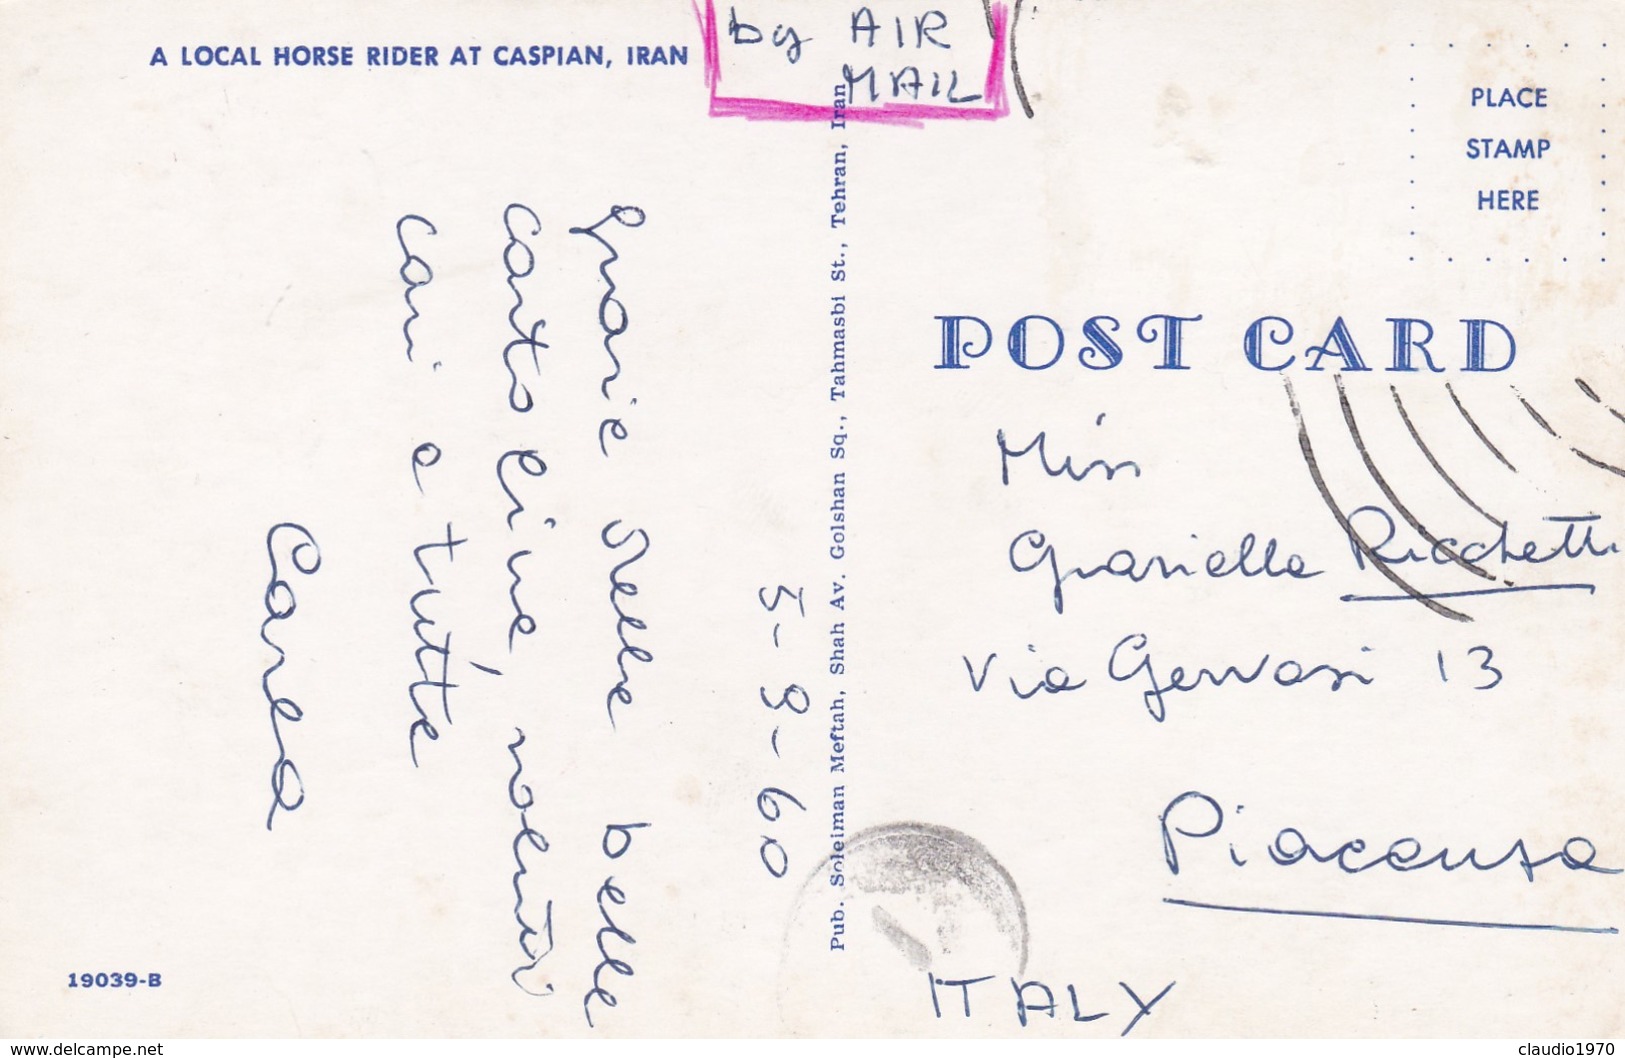 A LOCAL HORSE RIDER AT CASPIAN, IRAN
by AIR
MAIL
PLACE
STAMP
HERE
POST CARD
5-9-60
Grazie delle belle
cartoline, saluti
cari a tutte
Carla
Pub. Soleiman Meftah, Shah Av. Golshan Sq., Tahmasbi St., Tehran, Iran
Miss
Graziella Ricchetti
Via Gervasi 13
Piacenza
ITALY
19039-B
www.delcampe.net
claudio1970